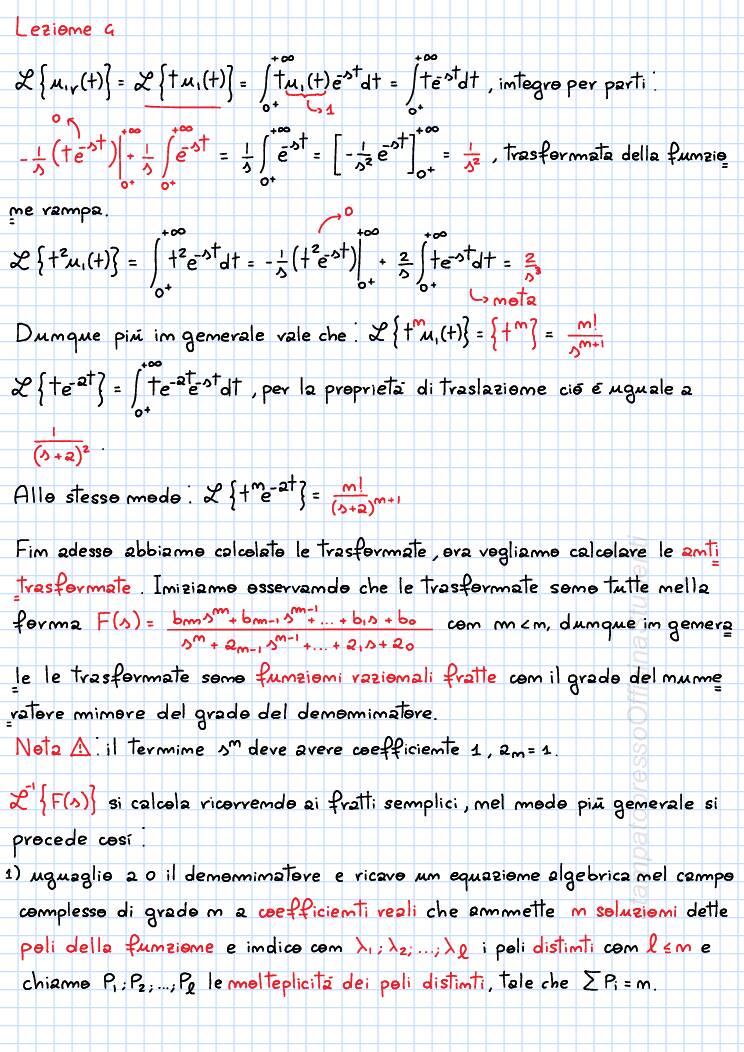 Lezione 4
ℒ{u₁,r(t)} = ℒ{t u₁(t)} = ∫_{0⁺}^{+∞} t u₁(t) e^{-st} dt = ∫_{0⁺}^{+∞} t e^{-st} dt , integro per parti :
↳ 1
-1/s (t e^{-st}) |_{0⁺}^{+∞} + 1/s ∫_{0⁺}^{+∞} e^{-st} = 1/s ∫_{0⁺}^{+∞} e^{-st} = [-1/s² e^{-st}]_{0⁺}^{+∞} = 1/s² , trasformata della funzio
0
ne rampa.
ℒ{t² u₁(t)} = ∫_{0⁺}^{+∞} t² e^{-st} dt = -1/s (t² e^{-st}) |_{0⁺}^{+∞} + 2/s ∫_{0⁺}^{+∞} t e^{-st} dt = 2/s³
0
↳ nota
Dunque più in generale vale che : ℒ{tⁿ u₁(t)} = {tⁿ} = n!/s^{n+1}
ℒ{t e^{-at}} = ∫_{0⁺}^{+∞} t e^{-at} e^{-st} dt , per la proprietà di traslazione ciò è uguale a
1/(s+a)² .
Allo stesso modo : ℒ{tⁿ e^{-at}} = n!/(s+a)^{n+1}
Fin adesso abbiamo calcolato le trasformate , ora vogliamo calcolare le anti
trasformate . Iniziamo osservando che le trasformate sono tutte nella
forma F(s) = (b_m s^m + b_{m-1} s^{m-1} + ... + b₁s + b₀)/(sⁿ + a_{n-1} s^{n-1} + ... + a₁s + a₀) con m < n, dunque in genera
le le trasformate sono funzioni razionali fratte con il grado del nume
ratore minore del grado del denominatore.
Nota ⚠ : il termine sⁿ deve avere coefficiente 1 , aₙ = 1.
ℒ⁻¹{F(s)} si calcola ricorrendo ai fratti semplici , nel modo più generale si
procede così :
1) uguaglio a 0 il denominatore e ricavo un equazione algebrica nel campo
complesso di grado n a coefficienti reali che ammette n soluzioni dette
poli della funzione e indico con λ₁ ; λ₂ ; ... ; λ_ℓ i poli distinti con ℓ ≤ n e
chiamo P₁ ; P₂ ; ... ; P_ℓ le molteplicità dei poli distinti, tale che ∑ Pᵢ = n.